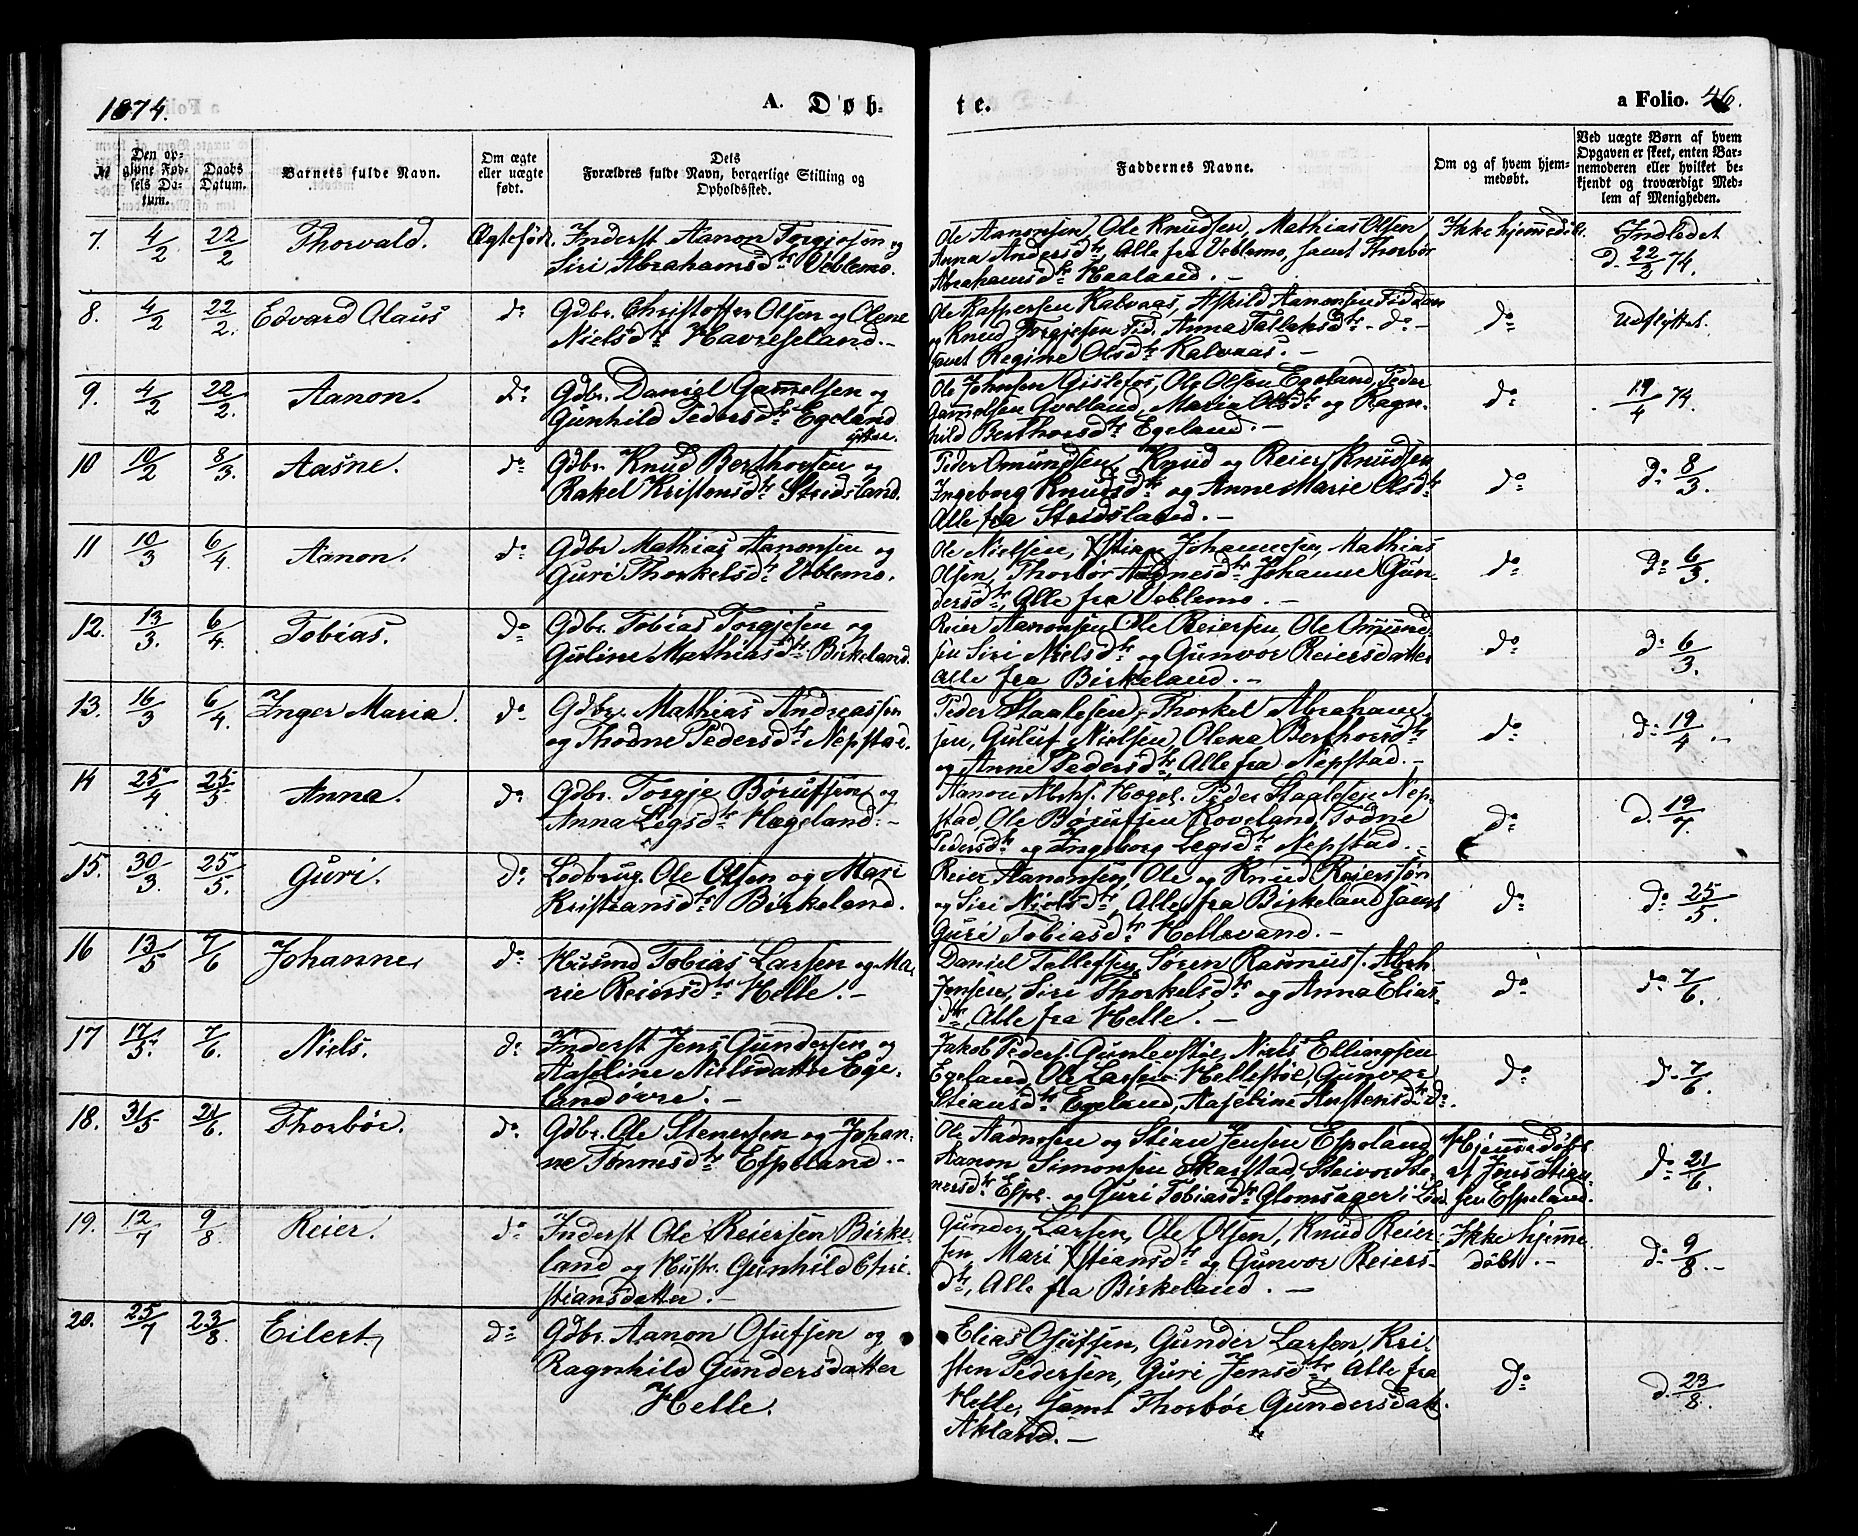 1874.
A. Døb-
te.
a Folio. 46.
№
Den op-
givne Fød-
sels Da-
tum.
Daabs
Datum.
Barnets fulde Navn.
Om ægte
eller uægte
født.
Dets
Forældres fulde Navn, borgerlige Stilling og
Opholdssted.
Faddernes Navne.
Om og af hvem hjem-
medøbt.
Ved uægte Børn af hvem
Opgaven er skeet, enten Bar-
nemoderen eller hvilket be-
kjendt og troværdig Med-
lem af Menigheden.
7. 4/2 22/2 Thorvald. Ægtefødt. Inderst Aanon Torgjesen og
Siri Abrahamsdtr Veblemo.
Ole Aanonsen, Ole Knudsen, Mathias Olsen
Anna Andersdtr, Alle fra Veblemo, samt Thorbør
Abrahamsdtr Haaland. —
Ikke hjemmedøbt.
Indledet
d. 22/2 74.
8. 4/2 22/2. Edvard Olaus do Gdbr. Christoffer Olsen og Olene
Nielsdtr Havreseland. —
Ole Kaspersen Kalvaas, Askild Aanonsen Fidaan
og Knud Torgjesen Fid. Anna Tallaksdtr - do -
samt Regine Olsdtr Kalvaas. —
do
Udflyttet.
9. 4/2 22/2. Aanon. do Gdbr. Daniel Gamelsen og
Gunhild Pedersdtr Egeland
ytter.
Ole Johnsen Gislefos, Ole Olsen Egeland, Peder
Gamelsen Qvelland, Maria Olsdtr og Ragn-
hild Berthorsdtr Egeland. —
do
19/4 74.
10 10/2 8/3. Aasne. do Gdbr. Knud Berthorsen og
Rakel Kristensdtr Stridsland.
Peder Omundsen, Knud og Reier Knudsen
Ingeborg Knudsdtr og Anne Marie Olsdtr
Alle fra Stridsland. —
do
do 8/3.
11 10/3 6/4. Aanon. do Gdbr Mathias Aanonsen og
Guri Thorkelsdtr Veblemo.
Ole Nielsen, Xstian Johannesen, Mathias
Olsen, Thorbør Aadnesdtr, Johanne Gun-
dersdtr, Alle fra Veblemo. —
do
do 6/3.
12. 13/3. 6/4. Tobias. do Gdbr. Tobias Torgjesen og
Guline Mathiasdtr Birkeland.
Reier Aanonsen, Ole Reiersen, Ole Omund-
sen Siri Nielsdtr og Gunvor Reiersdatter
alle fra Birkeland. —
do
do 6/3.
13. 16/3 6/4 Inger Maria. do Gdbr. Mathias Andreassen
og Thodne Pedersdtr Nepstad.
Peder Staalesen, Thorkel Abraham-
sen, Guluf Nielsen, Olena Berthorsdtr
og Anne Pedersdtr, Alle fra Nepstad. —
do
do 19/4. —
14 25/4 25/5. Anna. do Gdbr. Torgje Børufsen og
Anna Legsdtr Hægeland. —
Aanon Abrhs. Hægel. Peder Staalesen Nep-
stad, Ole Børufsen Roveland, Todne
Pedersdtr og Ingeborg Legsdtr Nepstad. —
do
d. 19/7.
15. 30/3. 25/5. Guri. do Lodbrug. Ole Olsen og Mari
Kristiansdtr Birkeland.
Reier Aanonsen, Ole og Knud Reierssøn
og Siri Nielsdtr, Alle fra Birkeland samt
Guri Tobiasdtr Hellevand. —
do
do 25/5.
16 13/5 7/6 Johanne. do Husmd Tobias Larsen og Ma-
rie Reiersdtr Helle. —
Daniel Tallefsen, Søren Rasmuss. Abrh.
Jensen, Siri Thorkelsdtr og Anna Elias-
dtr, Alle fra Helle. —
do
do 7/6.
17 17/5. 7/6. Niels. do Inderst Jens Gundersen og
Aaseline Nielsdatter Ege-
landøvre. —
Jakob Peders. Gunlevstøl, Niels Ellingsen
Egeland, Ole Larsen Hellestøl, Gunvor
Stiansdtr Egeland, Aaseline Austensdtr do.
do
d. 7/6.
18. 31/5 21/6. Thorbør. do Gdbr. Ole Stenersen og Johan-
ne Tønnesdtr Espeland. —
Ole Aadnesen og Stian Jensen Espeland
Aanon Simonsen Skarstad, Steivor Ste-
nersdtr Espel. og Guri Tobiasdtr Glomsager i
Hjemmedøbt
af Jens Stian-
sen Espeland.
do 21/6.
19. 12/7 9/8 Reier. do Inderst Ole Reiersen Birke-
land og Hustr. Gunhild Chri-
stiansdatter. —
Gunder Larsen, Ole Olsen, Knud Reier-
sen, Mari Xstiansdtr og Gunvor Reiers-
dtr, Alle fra Birkeland. —
Ikke hjemme
døbt. —
do 9/8. —
20. 25/7 23/8. Eilert, do Gdbr. Aanon Osufsen og
Ragnhild Gundersdatter
Helle.
Elias Osufsen, Gunder Larsen, Kri-
sten Pedersen, Guri Jensdtr, Alle fra
Helle, samt Thorbør Gundersdatt.
Akland. —
do
d. 23/8.